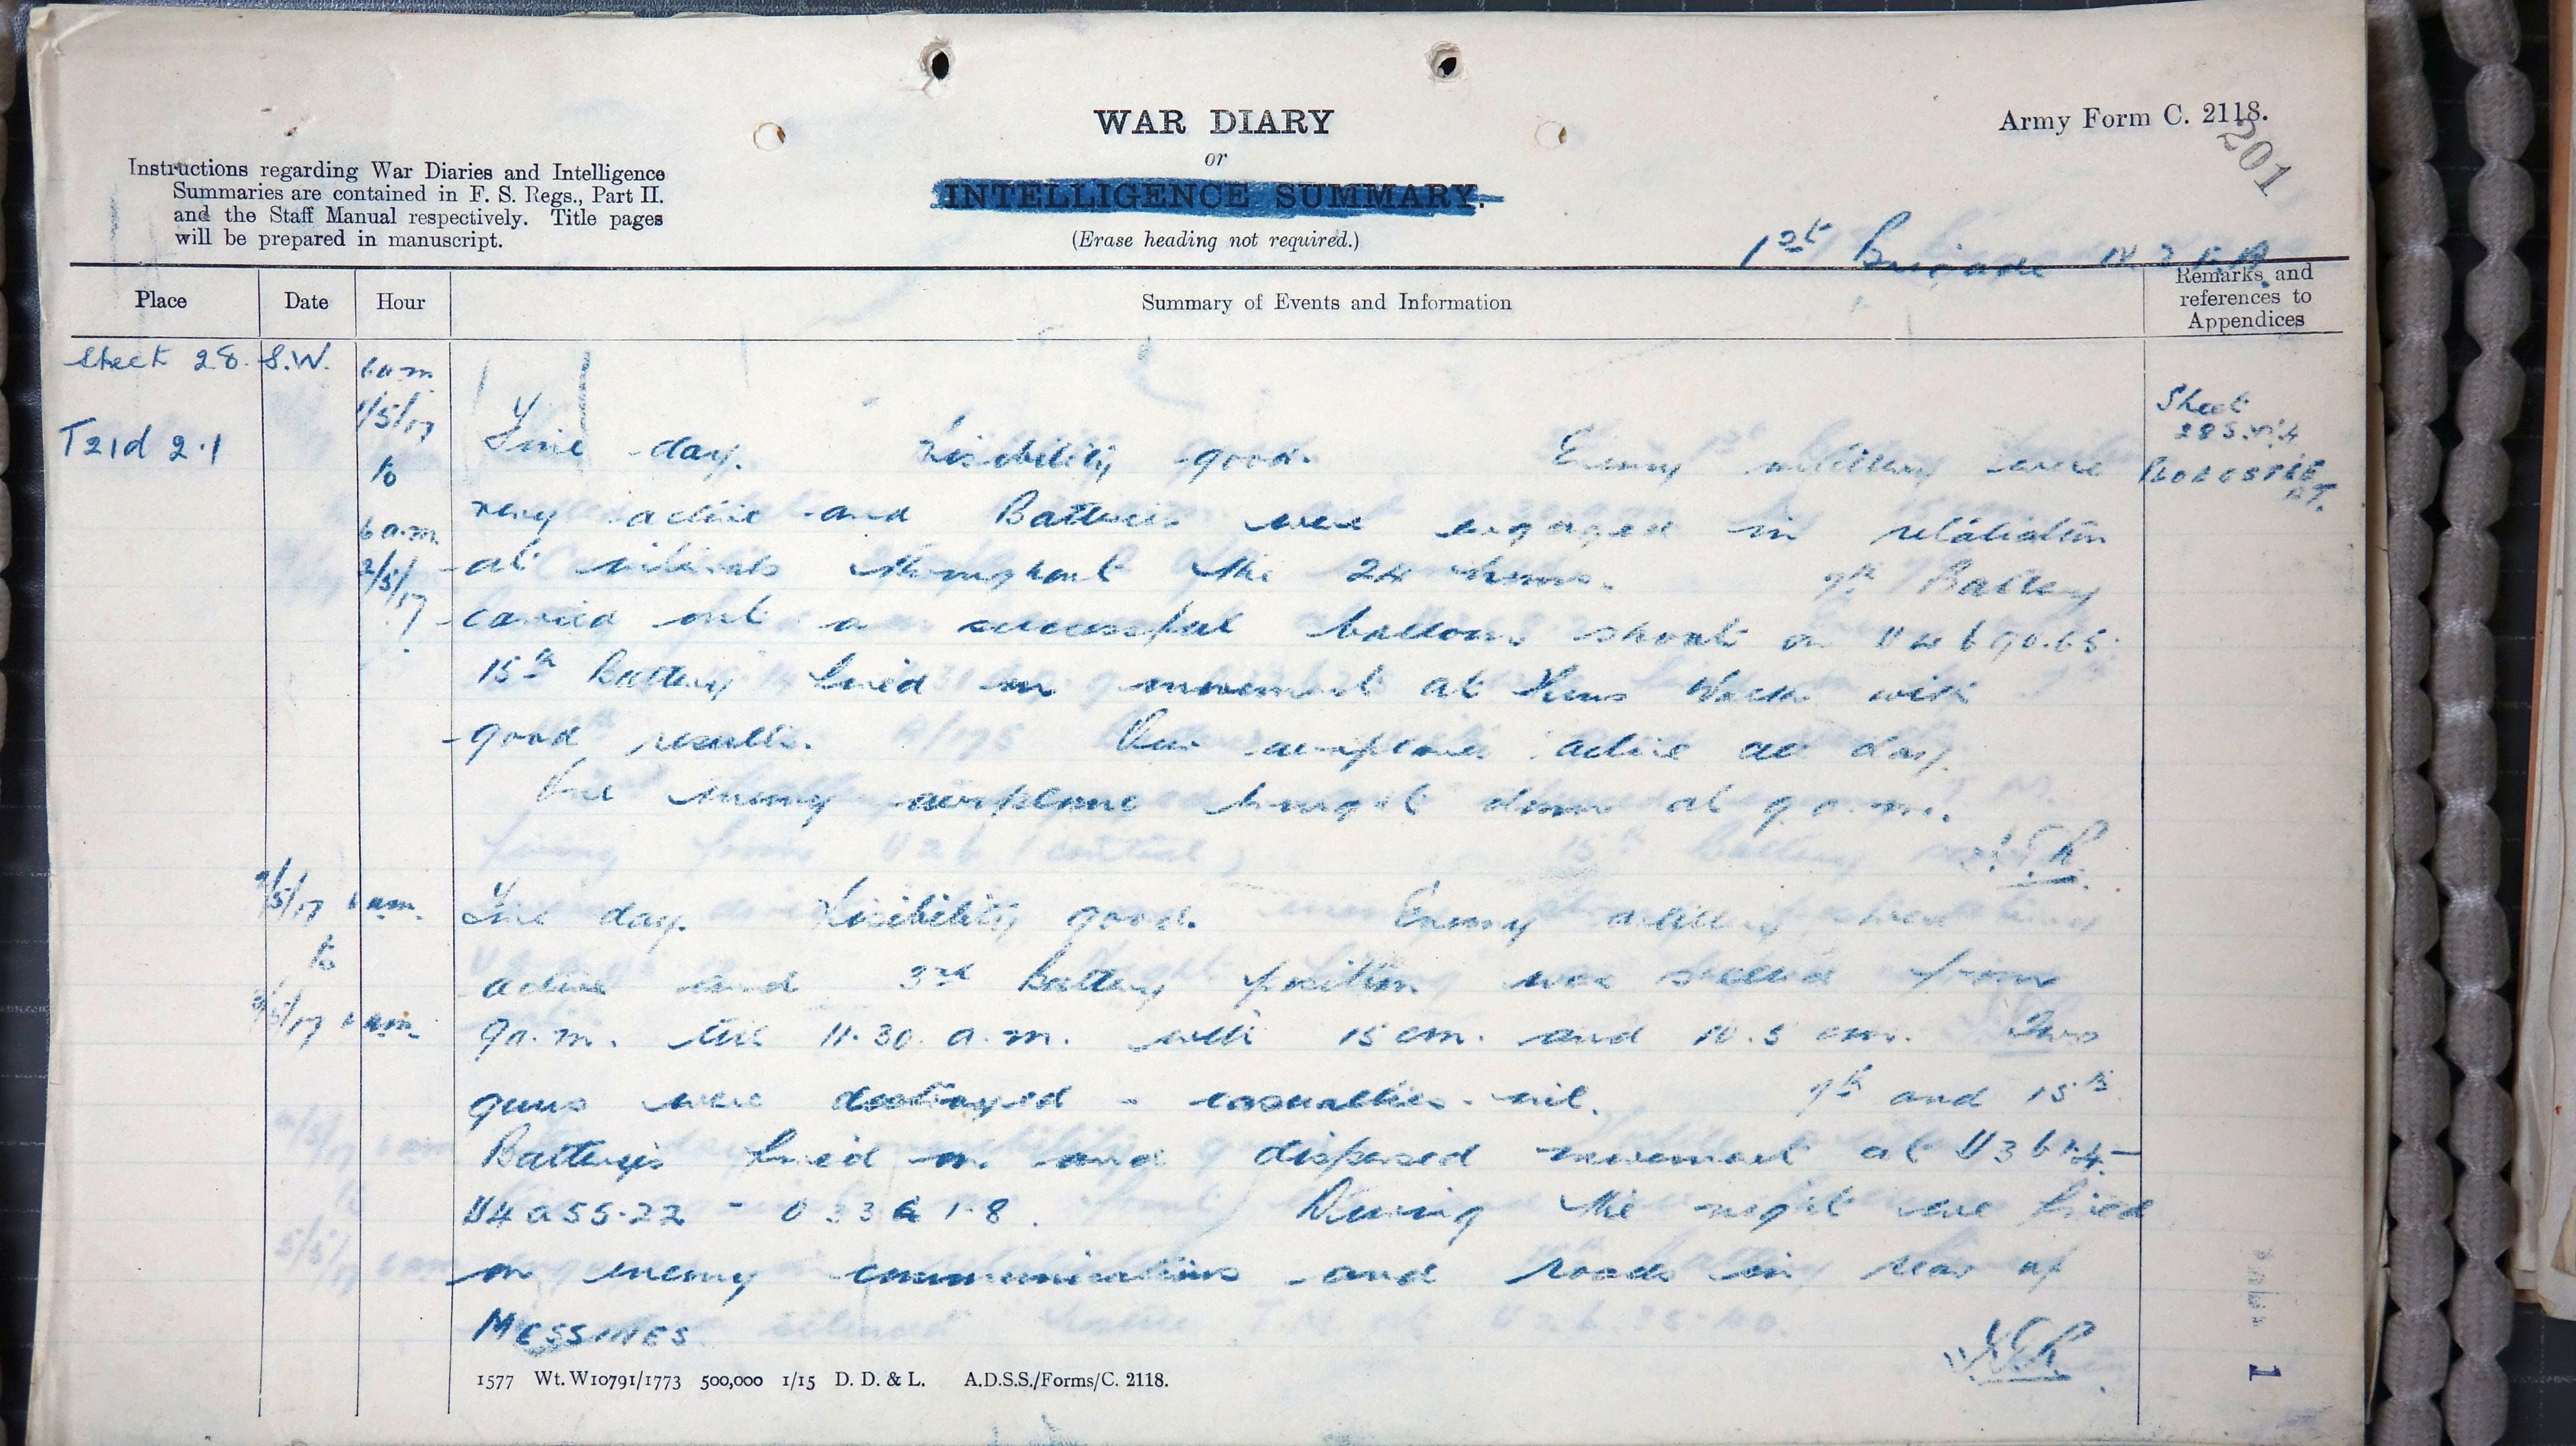 WAR DIARY
or
INTELLIGENCE SUMMARY.
(Erase heading not required.)
Army Form C. 2118.
201
Instructions regarding War Diaries and Intelligence
Summaries are contained in F. S. Regs., Part II.
and the Staff Manual respectively. Title pages
will be prepared in manuscript.
1st Brigade N Z F A
Place
Date
Hour
Summary of Events and Information
Remarks and
references to
Appendices
Sheet 28. S.W.
T21d 2.1
6 a m
1/5/17
to
6 a.m.
2/5/17
Sheet
28 S.W.4
Fine day. Visibility good. Enemy artillery were
very active and Batteries were engaged in retaliation
at intervals throughout the 24 hours. 7th Battery
carried out a successful balloon shoot on U4b90.65
15th Battery fired on movement at Huns Walk with
good results. Our aeroplanes active all day.
One enemy aeroplane brought down at 9 a.m.
2/5/17 6 am.
to
3/5/17 6 am.
Fine day. Visibility good. Enemy artillery
active and 3rd Battery position was shelled from
9 a.m. till 11.30. a.m. with 15 cm. and 10.5 cm. Two
guns were destroyed - casualties - nil. 7th and 15th
Batterys fired on and dispersed movement at U3b1.4 -
U4a55.22 - O33a1.8. During the night we fired
on enemy communications and roads in rear of
MESSINES
1577 Wt. W10791/1773 500,000 1/15 D. D. & L. A.D.S.S./Forms/C. 2118.
1